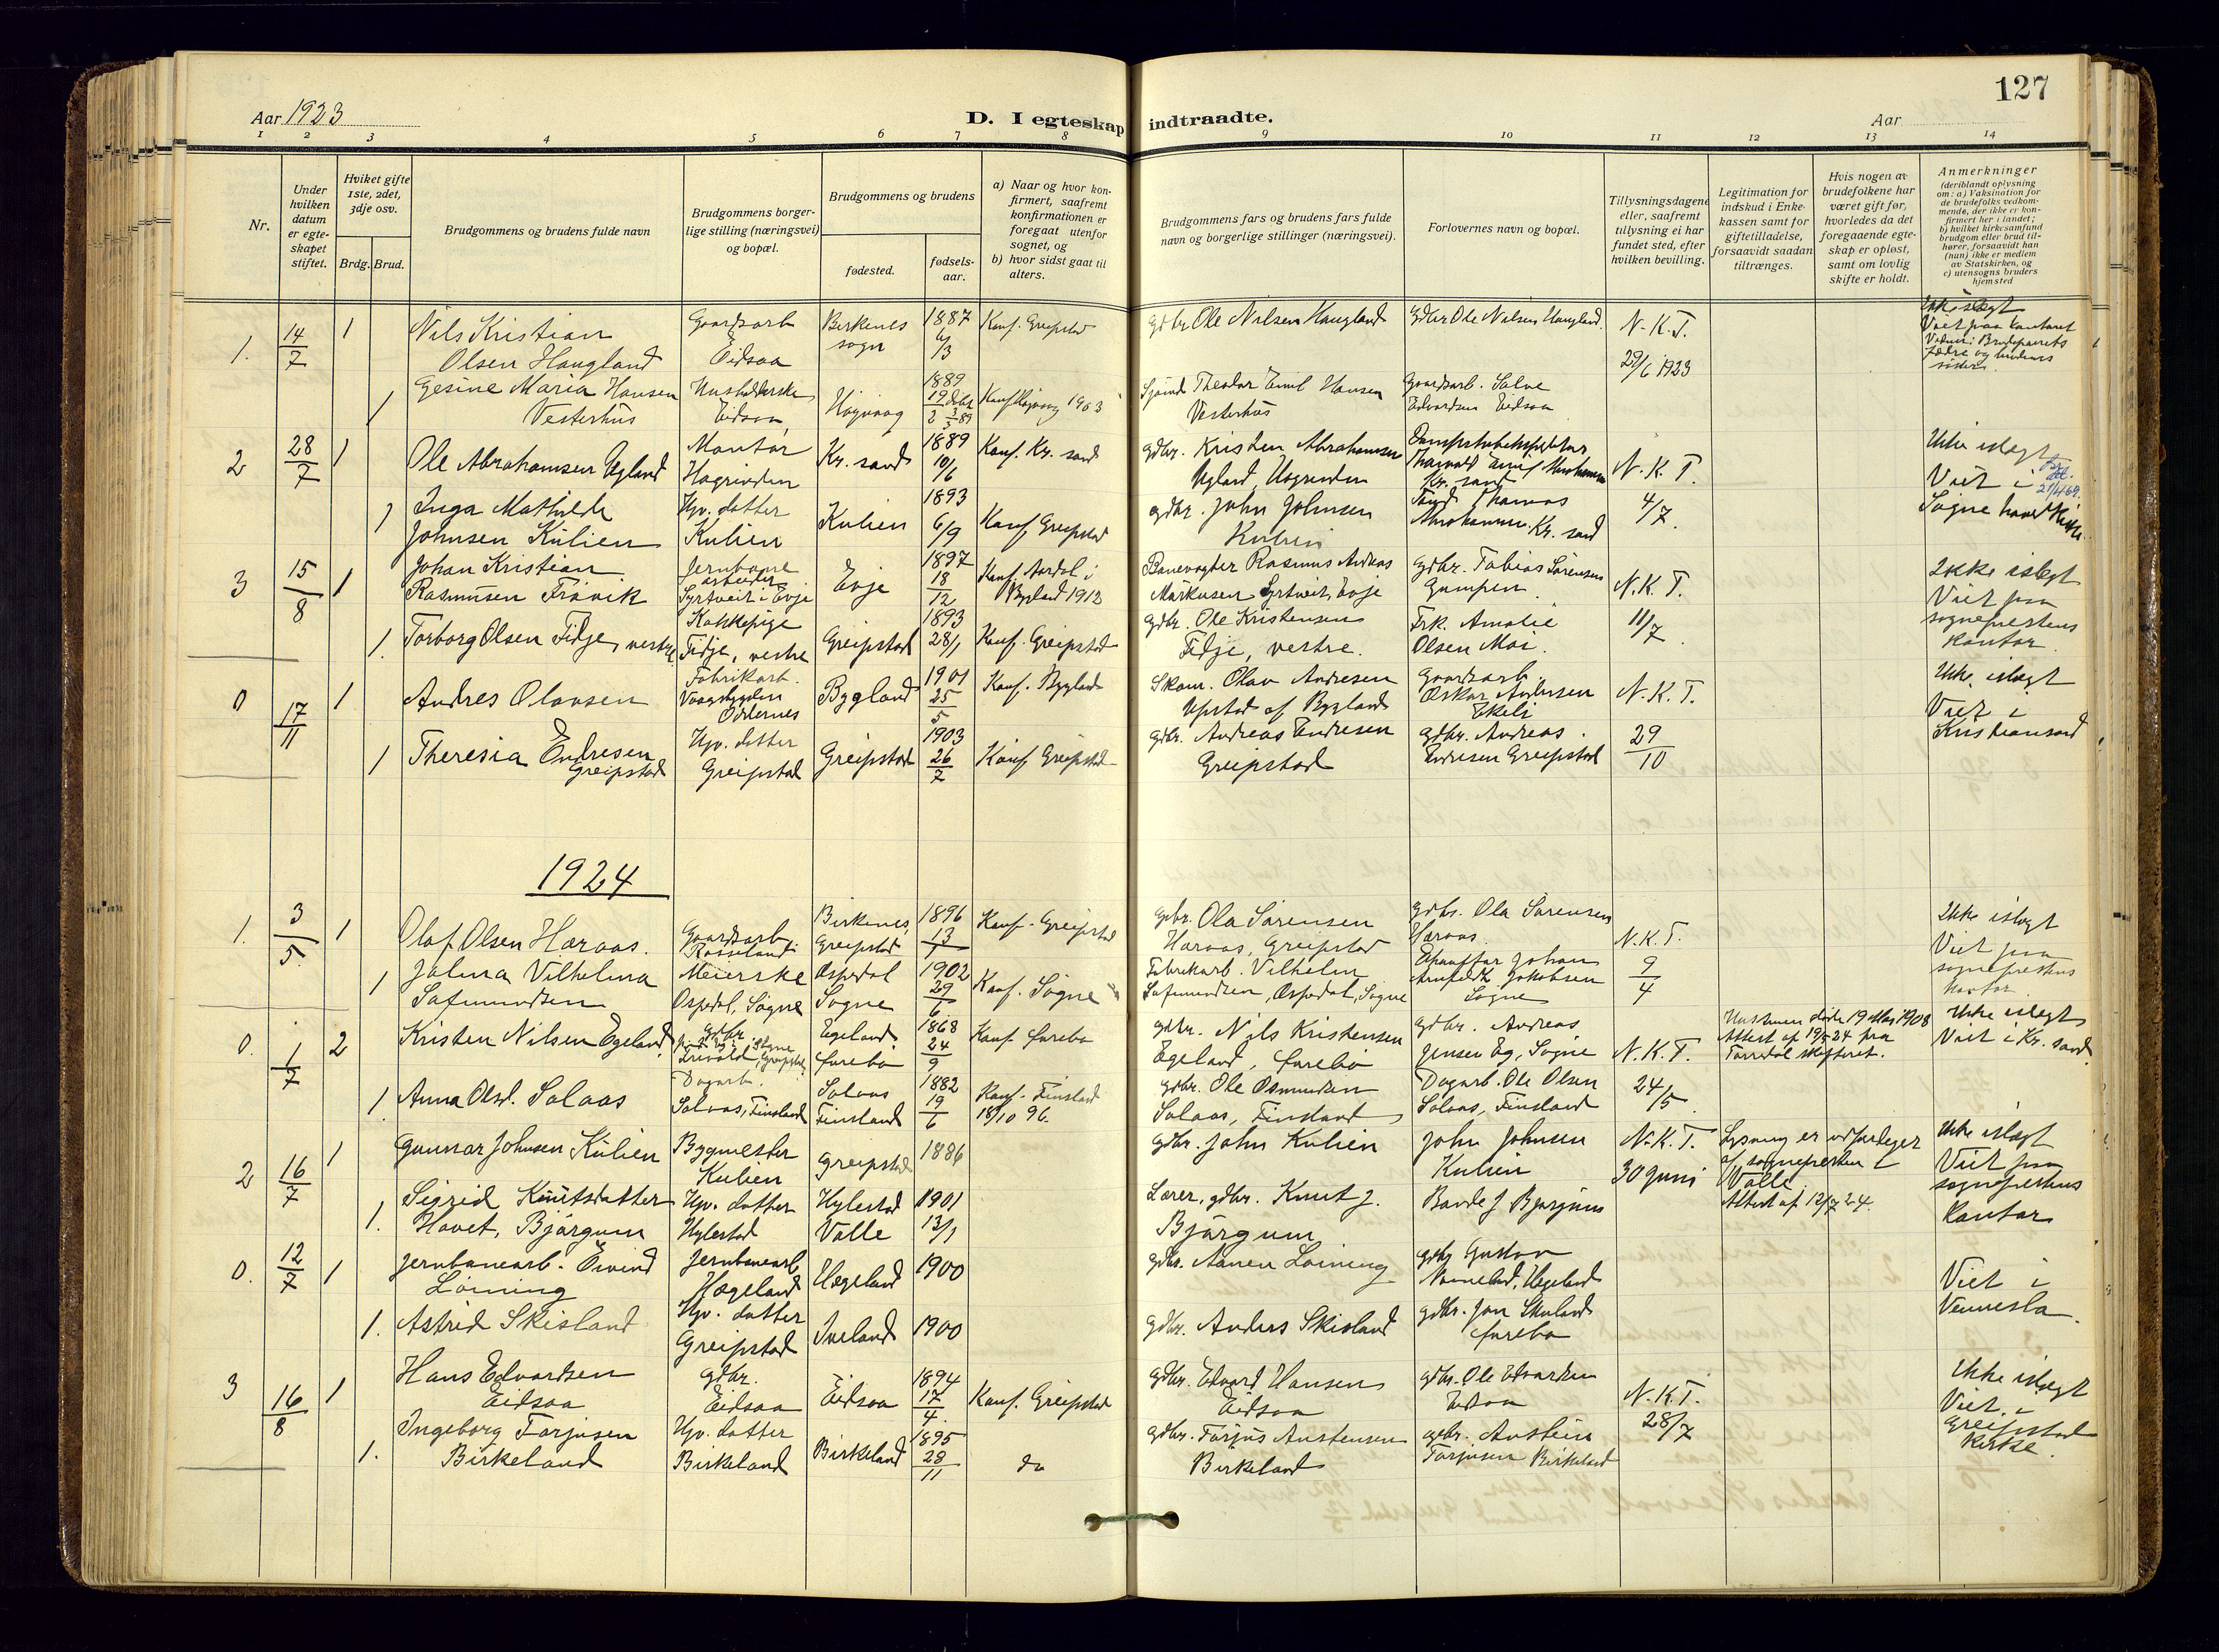 127
Aar 1923
D. I egteskap indtraadte.
Aar
1 2 3 4 5 6 7 8 9 10 11 12 13 14
Nr.
Under hvilken datum er egteskapet stiftet.
Hviket gifte 1ste, 2det, 3dje osv.
Brdg. Brud.
Brudgommens og brudens fulde navn
Brudgommens borgerlige stilling (næringsvei) og bopæl.
Brudgommens og brudens
fødested.
fødselsaar.
a) Naar og hvor konfirmert, saafremt konfirmationen er foregaat utenfor sognet, og
b) hvor sidst gaat til alters.
Brudgommens fars og brudens fars fulde navn og borgerlige stillinger (næringsvei).
Forlovernes navn og bopæl.
Tillysningsdagene eller, saafremt tillysning ei har fundet sted, efter hvilken bevilling.
Legitimation for indskud i Enkekassen samt for giftetilladelse, forsaavidt saadan tiltrænges.
Hvis nogen av brudefolkene har været gift før, hvorledes da det foregaaende egteskap er opløst, samt om lovlig skifte er holdt.
Anmerkninger
(deriblandt oplysning om: a) Vaksination for de brudefolks vedkommende, der ikke er konfirmert her i landet;
b) hvilket kirkesamfund brudgom eller brud tilhører, forsaavidt han (hun) ikke er medlem av Statskirken, og
c) utensogns bruders hjemsted
1. 14/7 1 Nils Kristian Olsen Haugland Gaardsarb Eidsaa Birkenes sogn 1887 6/3 Konf. Greipstad gdbr Ole Nilsen Haugland gdbr Ole Nilsen Haugland. N.K.T. 29/6 1923 Ikke i slegt Viet paa kontoret
1 Gesine Maria Hansen Vesterhus Husholderske Eidsaa Høgvaag 1889 Konf Høgvaag 1903 Sjømd Theodor Emil Hansen Vesterhus Gaardsarb. Salve Edvardsen Eidsaa
2 28/7 1 Ole Abrahamsen Ugland Montør Kr. sand 1889 10/6 Konf. Kr. sand gdbr. Kristen Abrahamsen Ugland N.K.T. 4/7. Ikke i slegt Viet i Søgne hoved Kirke.
1 Inga Mathilde Johnsen Kulien Hjv. datter Kulien Kulien 1893 6/9 Konf Greipstad gdbr. John Johnsen Kulien Thomas Abrahamsen. Kr. sand
21/4 69.
3 15/8 1 Johan Kristian Rasmussen Frøvik Jernbanearbeider Syrtveit i Evje Evje 1897 18/12 Konf. Aardal i Bygland 1912 Banevogter Rasmus Andreas Markusen Syrtveit, Evje gdbr. Tobias Sørensen Gumpen. N.K.T. 11/7 Ikke i slegt Viet paa sogneprestens kontor.
1. Torborg Olsen Fidje, vestre Kokkepige Fidje, vestre Greipstad 1893 28/1 Konf. Greipstad gdbr. Ole Kristensen Fidje, vestre. Frk. Amalie Olsen Moi.
0 17/11 1 Andres Olavsen Fabrikarb. Vaagsbygden Oddernes Bygland 1901 25/5 Konf. Bygland Skom. Olav Andresen Upstad af Bygland Gaardsarb. Oskar Andersen Ekeli N.K.T. 29/10 Ikke i slegt Viet i Kristiansand
1 Theresia Endresen Greipstad Hjv. datter Greipstad Greipstad 1903 26/7 Konf Greipstad gdbr. Andreas Endresen Greipstad gdbr. Andreas Endresen Greipstad
1924
1. 3/5. 1 Olaf Olsen Haraas. Gaardsarb. Rosseland Birkenes, Greipstad 1896 13/7 Konf. Greipstad gdbr. Ola Sørensen Haraas, Greipstad gdbr. Ola Sørensen Haraas. N.K.T. 9/4 Ikke i slegt Viet paa sogneprestens kontor
1 Jalma Vilhelma Safmundsen Meierske Ospedal, Søgne Ospedal Søgne 1902 29/6 Konf. Søgne Fabrikarb. Vilhelm Safmundsen, Ospedal, Søgne Johan Jakobsen Søgne
0. 1/7 2 Kristen Nilsen Egeland. gdbr Egeland Øvrebø 1868 24/9 Konf Øvrebø gdbr. Nils Kristensen Egeland, Øvrebø gdbr. Andreas Jensen Eg, Søgne N.K.T. 24/5. Hustruen døde 19 Mai 1908 Attest af 19/5 24 fra Torridal skifteret. Ikke i slegt Viet i Kr. sand.
1. Anna Olsd. Solaas Dagarb. Solaas, Finsland Solaas Finsland 1882 19/6 Konf. Finsland 18/10 96. gdbr. Ole Osmundsen Solaas, Finsland Dagarb. Ole Olsen Solaas, Finsland
2 16/7 1 Gunnar Johnsen Kulien Bygmester Kulien Greipstad 1886 gdbr. John Kulien John Johnsen Kulien N.K.T. 30 juni Lysning er udfærdiget af sognepresten i Valle Attest af 12/7 24. Ikke i slegt Viet paa sogneprestens kontor
1. Sigrid Knutsdatter Hovet, Bjørgum Hjv. datter Hylestad Hylestad Valle 1901 13/1 Lærer, gdbr. Knut J. Bjørgum Baarde J Bjørgum
0. 12/7 1 Jernbanearb. Eivind Løining Jernbanearb Hægeland Hægeland 1900 gdbr. Aanen Løining gdbr Gustav Hægeland Viet i Vennesla.
1. Astrid Skisland Hjv. datter Greipstad Iveland 1900 gdbr. Anders Skisland gdbr. Jon Skisland Øvrebø
3 16/8 1 Hans Edvardsen Eidsaa gdbr. Eidsaa Eidsaa 1894 17/4. Konf. Greipstad gdbr. Edvard Hansen Eidsaa gdbr. Ole Edvardsen Eidsaa N.K.T. 28/7 Ikke i slegt Viet i Greipstad Kirke.
1. Ingeborg Torjusen Birkeland Hjv. datter Birkeland Birkeland 1895 28/11 do gdbr. Torjus Austensen Birkeland gdbr. Austein Torjusen Birkeland